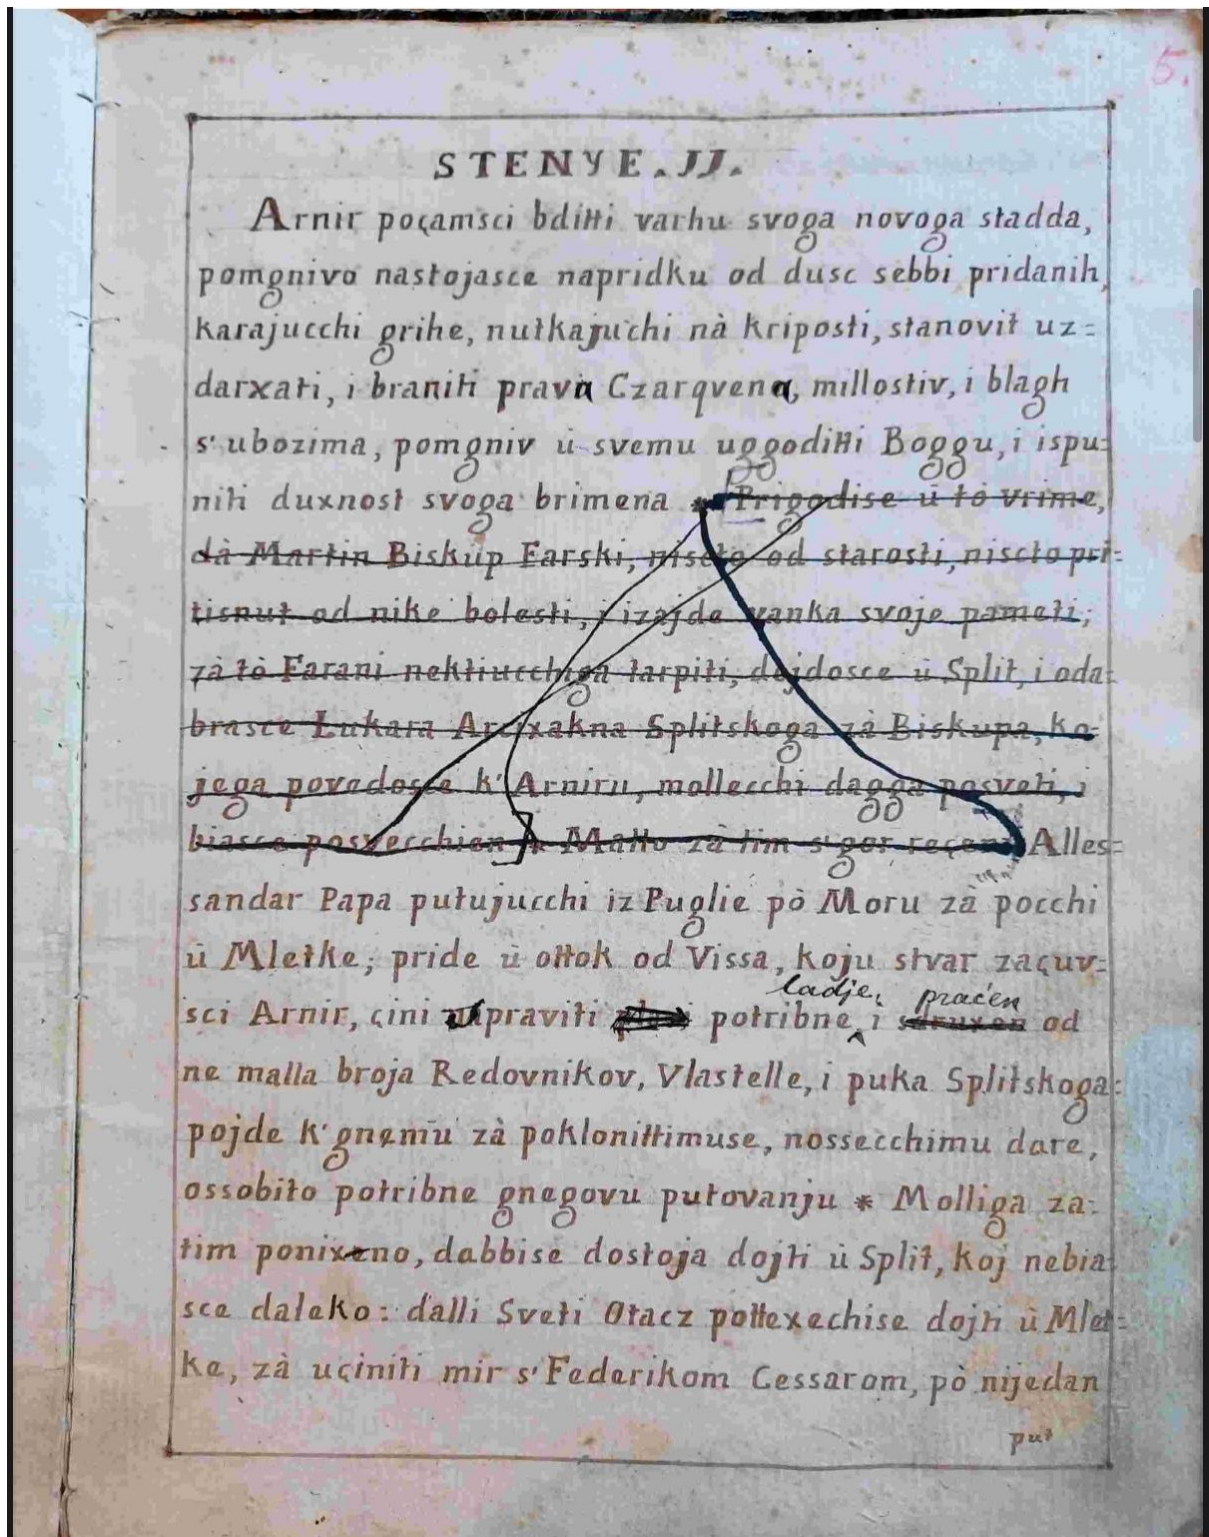 5.
STENYE. JJ.
Arnir poçamsci bditti varhu svoga novoga stadda,
pomgnivo nastojasce napridku od dusc sebbi pridanih,
karajucchi grihe, nutkajuchi nà kriposti, stanovit uz=
darxati, i braniti prava Czarqvena, millostiv, i blagh
s' ubozima, pomgniv ù svemu uggoditti Boggu, i ispu=
niti duxnost svoga brimena * Prigodise ù tò vrime,
dà Martin Biskup Farski, niscto od starosti, niscto pri=
tisnut od nike bolesti, i izajde vanka svoje pameti;
zà tò Farani nektiucchiga tarpiti, dojdosce ù Split, i oda=
brasce Lukara Arcixakna Splitskoga zà Biskupa, ko=
jega povedosce k' Arniru, mollecchi dagga posveti, i
biasce posvecchien] * Mallo zà tim s' gor reçeni Alles=
sandar Papa putujucchi iz Puglie pò Moru zà pocchi
ù Mletke; pride ù ottok od Vissa, koju stvar zaçuv=
ladje, praćen
sci Arnir, çini napraviti potribne, i sdruxen od
ne malla broja Redovnikov, Vlastelle, i puka Splitskoga=
pojde k' gnemu zà poklonittimuse, nossecchimu dare,
ossobito potribne gnegovu putovanju * Molliga za=
tim ponixeno, dabbise dostoja dojti ù Split, koj nebia
sce daleko: dalli Sveti Otacz pottexechise dojti ù Mlet=
ke, zà uçiniti mir s' Federikom Cessarom, pò nijedan
put